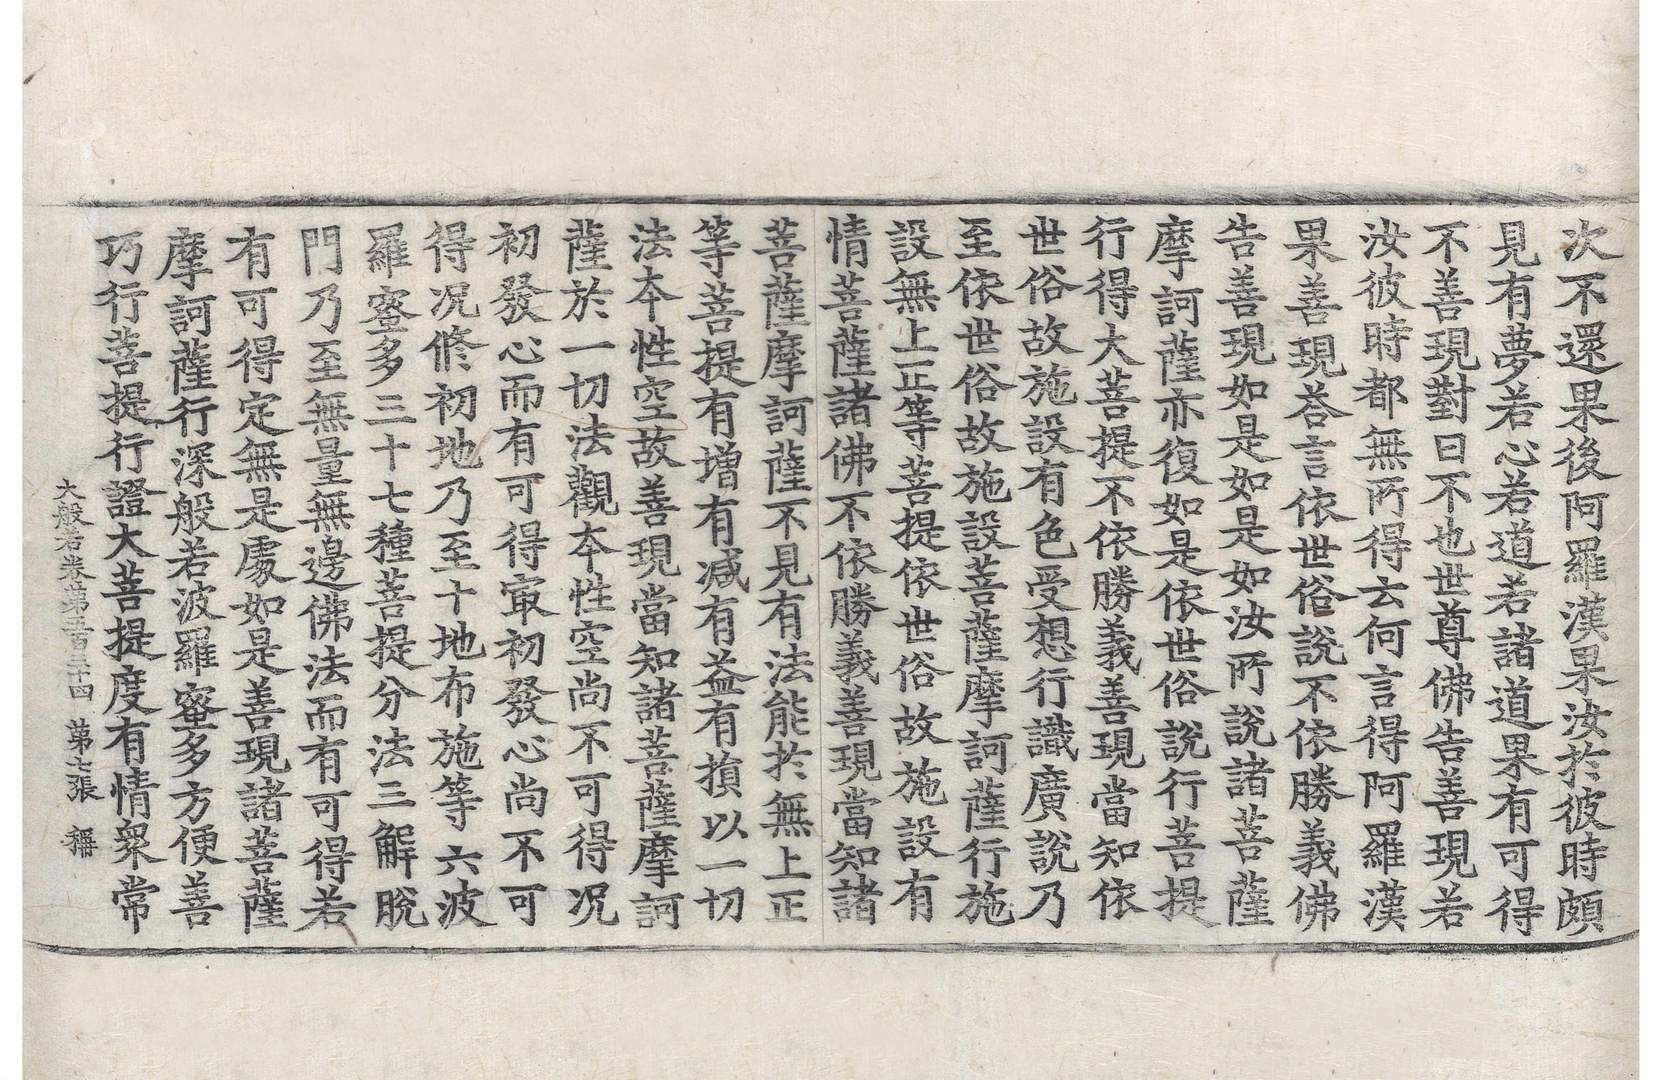 次不還果後阿羅漢果汝於彼時頗
見有夢若心若道若諸道果有可得
不善現對曰不也世尊佛告善現若
汝彼時都無所得云何言得阿羅漢
果善現荅言依世俗說不依勝義佛
告善現如是如是如汝所說諸菩薩
摩訶薩亦復如是依世俗說行菩提
行得大菩提不依勝義善現當知依
世俗故施設有色受想行識廣說乃
至依世俗故施設菩薩摩訶薩行施
設無上正等菩提依世俗故施設有
情菩薩諸佛不依勝義善現當知諸
菩薩摩訶薩不見有法能於無上正
等菩提有增有減有益有損以一切
法本性空故善現當知諸菩薩摩訶
薩於一切法觀本性空尚不可得况
初發心而有可得㝡初發心尚不可
得况修初地乃至十地布施等六波
羅蜜多三十七種菩提分法三解脫
門乃至無量無邊佛法而有可得若
有可得定無是處如是善現諸菩薩
摩訶薩行深般若波羅蜜多方便善
巧行菩提行證大菩提度有情衆常
大般若卷第五百三十四 第七張 稱